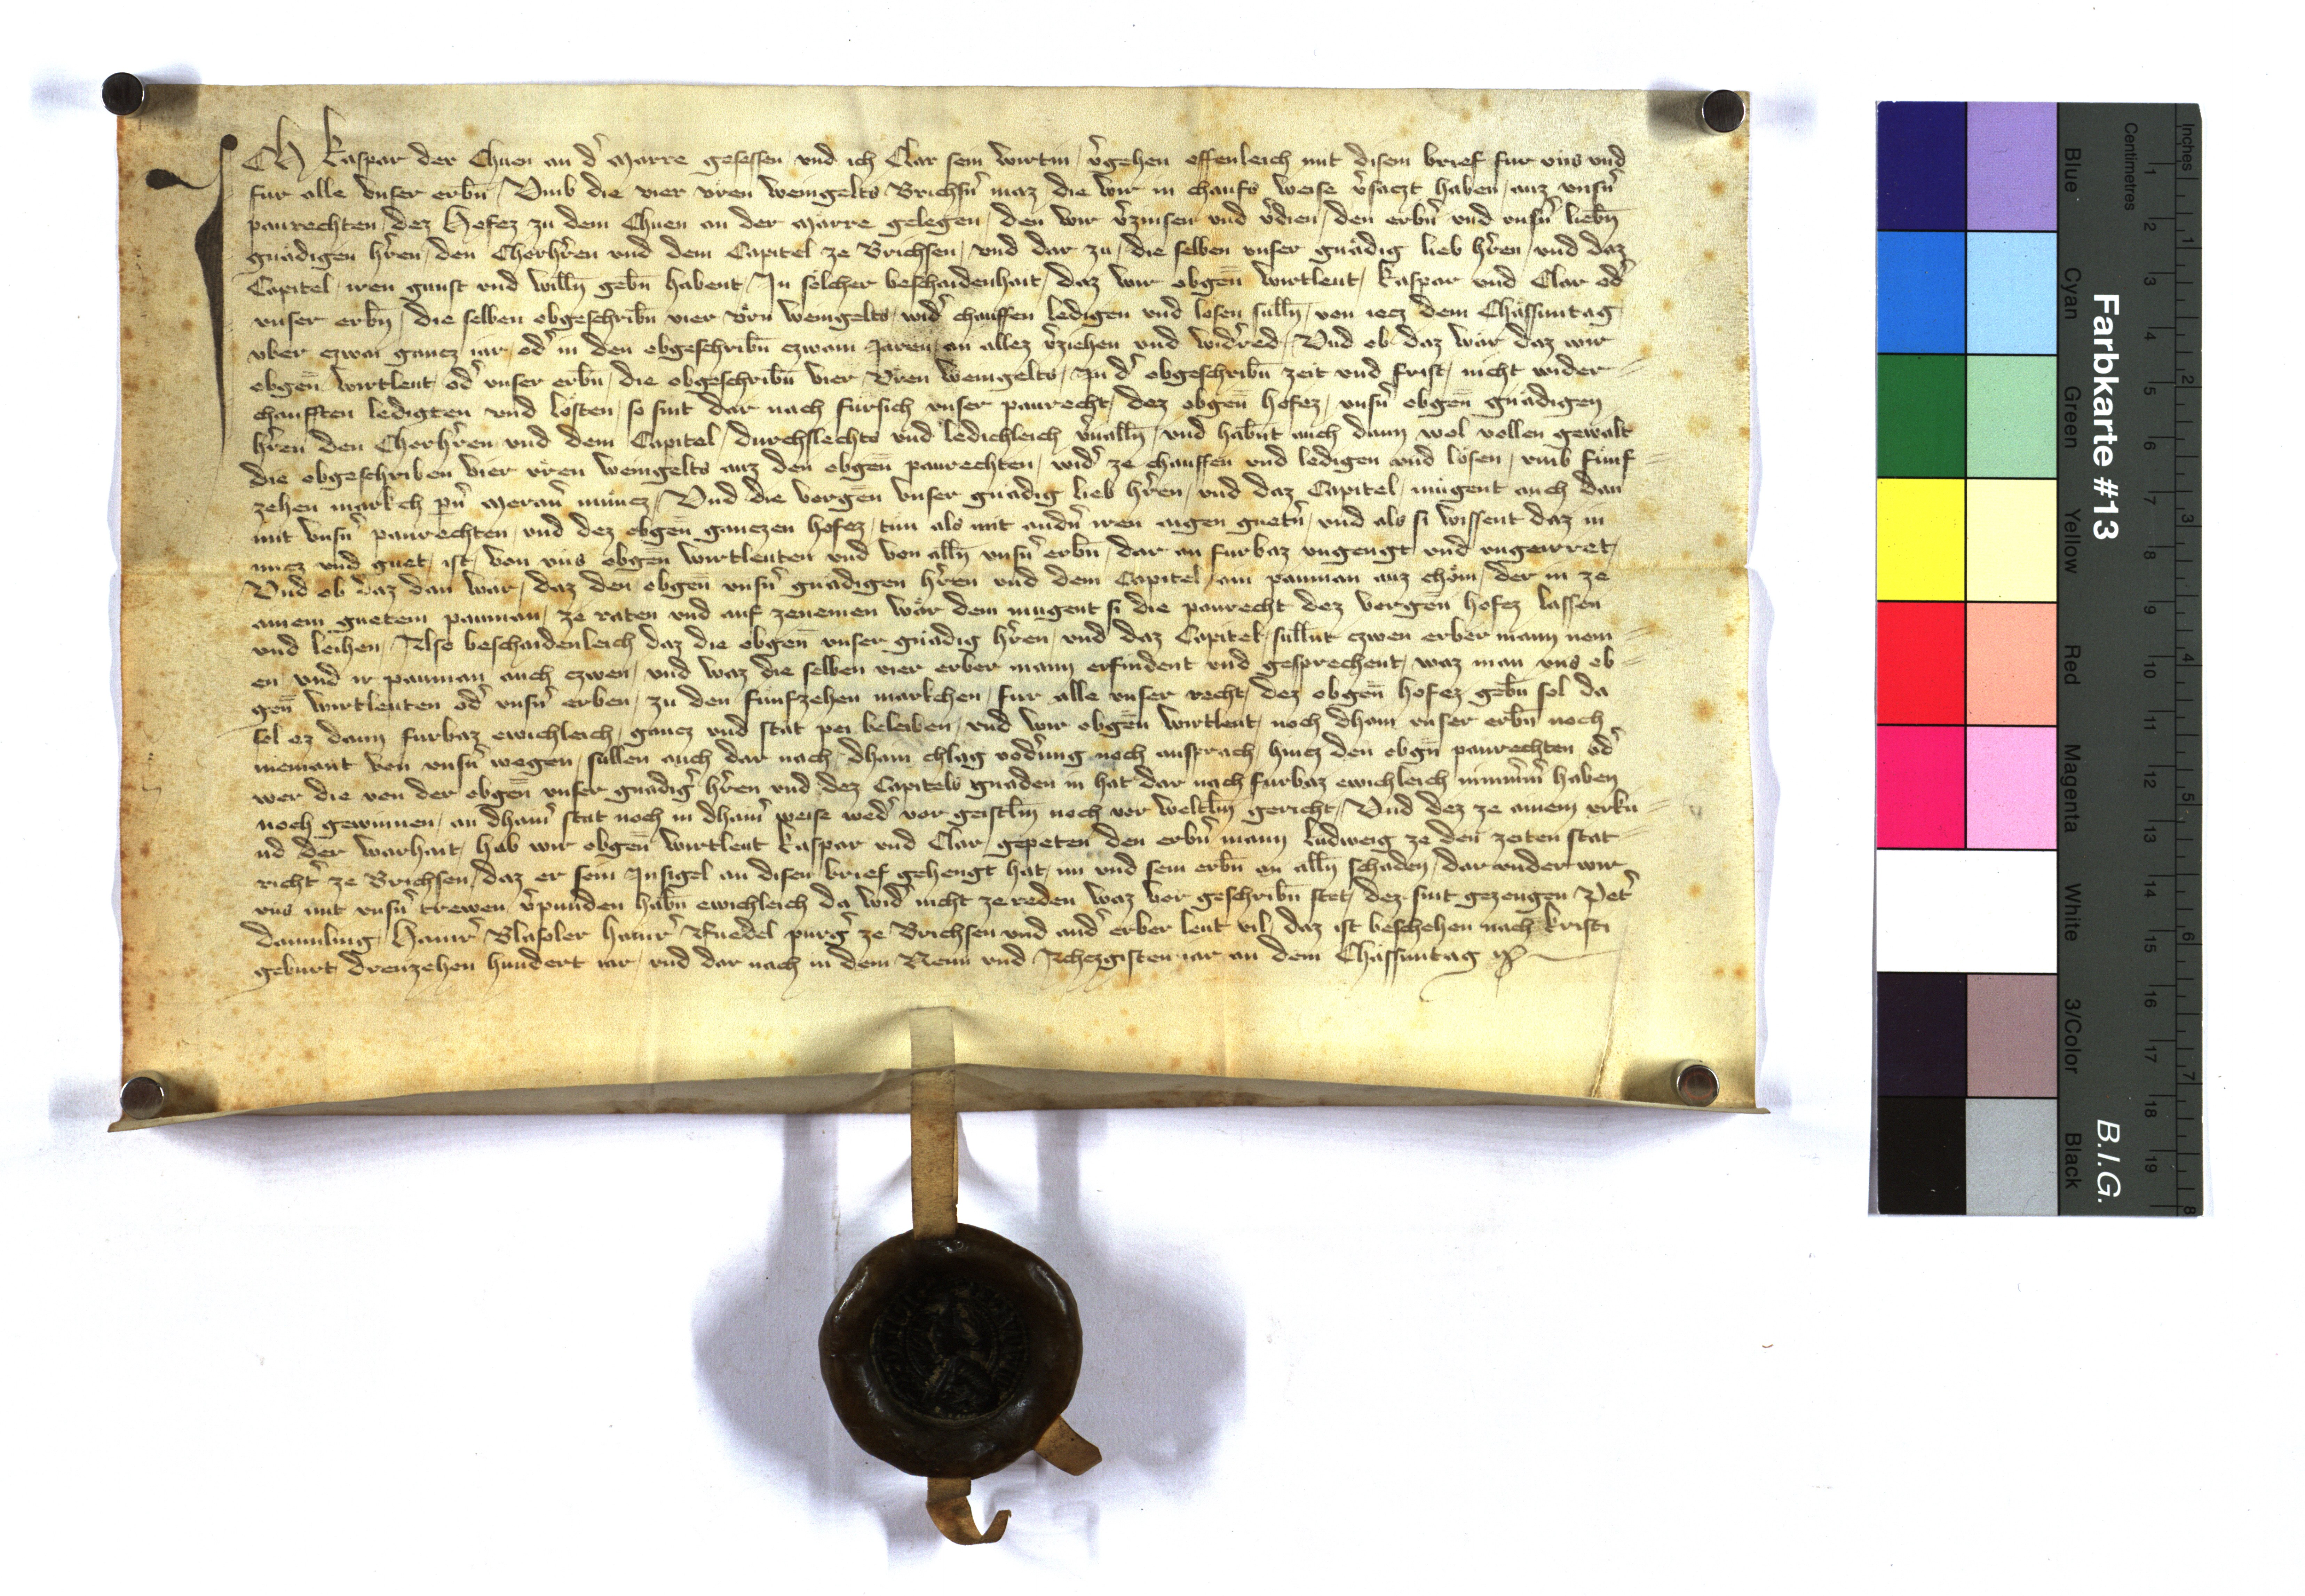 ICH Kaspar der Chuen an d̾ Marre gesessen und ich Clar sein wirtin v̾gehen offenleich mit disem brief fur uns und
fur alle unser erbn̄ Umb die vier uren weingelts Brichsn̾ maz die wir in chaufs weise v̾saczt haben auz unsn̾
paurechten dez Hofez zu dem Chuen an der Marre gelegen den wir v̾zinsen und v̾dien den erbn̾ und unsn̾ liebn̄
gnädigen h̾ren den Chorh̾ren und dem Capitel ze Brichsen und dar zu die selben unser gnädig lieb h̾ren und daz
Capitel iren gunst und willn̄ gebn̄ habent In sölcher beschaidenhait daz wir obgen̄ wirtleut Kaspar und Clar od̾
unser erbn̄ die selben obgeschribn̄ vier ürn weingelts wid̾ chauffen ledigen und lösen sülln̄ von iecz dem Chässuntag
uber czwai gancz iar od̾ in den obgeschribn̄ czwain Jaren an allez v̾ziehen und wid̾red Und ob daz wär daz wir
obgen̄ wirtleut od̾ unser erbn̄ die obgeschribn̄ vier Üren weingelts In d̾ obgeschribn̄ zeit und frist nicht wider=
chaufften ledigten und lösten so sint dar nach fürsich unser paurecht dez obgen̄ hofez unsn̾ obgen̄ gnädigen
h̾ren den Chorh̾ren und dem Capitel durchslechts und ledichleich v̾ualln̄ und habn̄t auch dann wol vollen gewalt
die obgeschriben vier üren weingelts auz den obgen̄ paurechten wid̾ ze chauffen und ledigen und lösen umb fünf=
zehen markch pn̾ Meran̾ müncz Und die vorgen̄ unser gnädig lieb h̾ren und daz Capitel mügent auch dan
mit unsn̾ paurechten und dez obgen̄ ganczen hofez tün als mit andn̾ iren aigen guetn̾ und als si wissent daz in
nucz und guet ist von uns obgen̄ wirtleuten und von alln̄ unsn̾ erbn̄ dar an furbaz ungengt und ungeirret
Und ob daz dan wär daz den obgen̄ unsn̾ gnädigen h̾ren und dem Capitel ain pauman auz chöm der in ze
ainem guetem pauman ze raten und auf zenemen wär dem mugent si die paurecht dez vorgen̄ hofez lassen
und leihen Also beschaidenleich daz die obgen̄ unser gnädig h̾ren und daz Capitel sülln̄t czwen erber mann nem=
en und ir pauman auch czwen und waz die selben vier erber mann erfindent und gesprechent waz man uns ob=
gen̄ wirtleuten od̾ unsn̾ erben zu den fünfzehen markchen fur alle unser recht dez obgen̄ hofez gebn̄ sol da
sol ez dann furbaz ewichleich gancz und stät pei beleiben und wir obgen̄ wirtleut noch dhain unser erbn̄ noch
niemant von unsn̾ wegen süllen auch dar nach dhain chlag vod̾ung noch ansprach hincz den obgn̄ paurechten od̾
wer die von der obgen̄ unser gnädig̾ h̾ren und dez Capitels gnaden in hat dar nach furbaz ewichleich nimm̾m̾ haben
noch gewinnen an dhain̾ stat noch in dhain̾ weise wed̾ vor geistln̄ noch vor weltln̄ gericht Und dez ze ainem urku=
nd der warhait hab wir obgen̄ wirtleut Kaspar und Clar gepeten den erbn̾ mann Ludweig ze den zeiten stat=
richt̾ ze Brichsen daz er sein Insigel an disen brief gehengt hat im und sein erbn̄ an alln̄ schaden dar under wir
uns mit unsn̾ trewen v̾punden habn̄ ewichleich da wid̾ nicht ze reden waz vor geschribn̄ stet dez sint gezeugen Pet̾
Hainr̾ Hainr̾ Ruedel purg̾ ze Brichsen und and̾ erber leut vil daz ist beschehen nach Kristi
geburt dreuzehen hundert iar und dar nach in dem Neun und Achczgisten iar an dem Chässuntag
Farbkarte #13
B.I.G.
Centimetres
Inches
Blue
Cyan
Green
Yellow
Red
Magenta
White
3/Color
Black
1 2 3 4 5 6 7 8 9 10 11 12 13 14 15 16 17 18 19
1 2 3 4 5 6 7 8